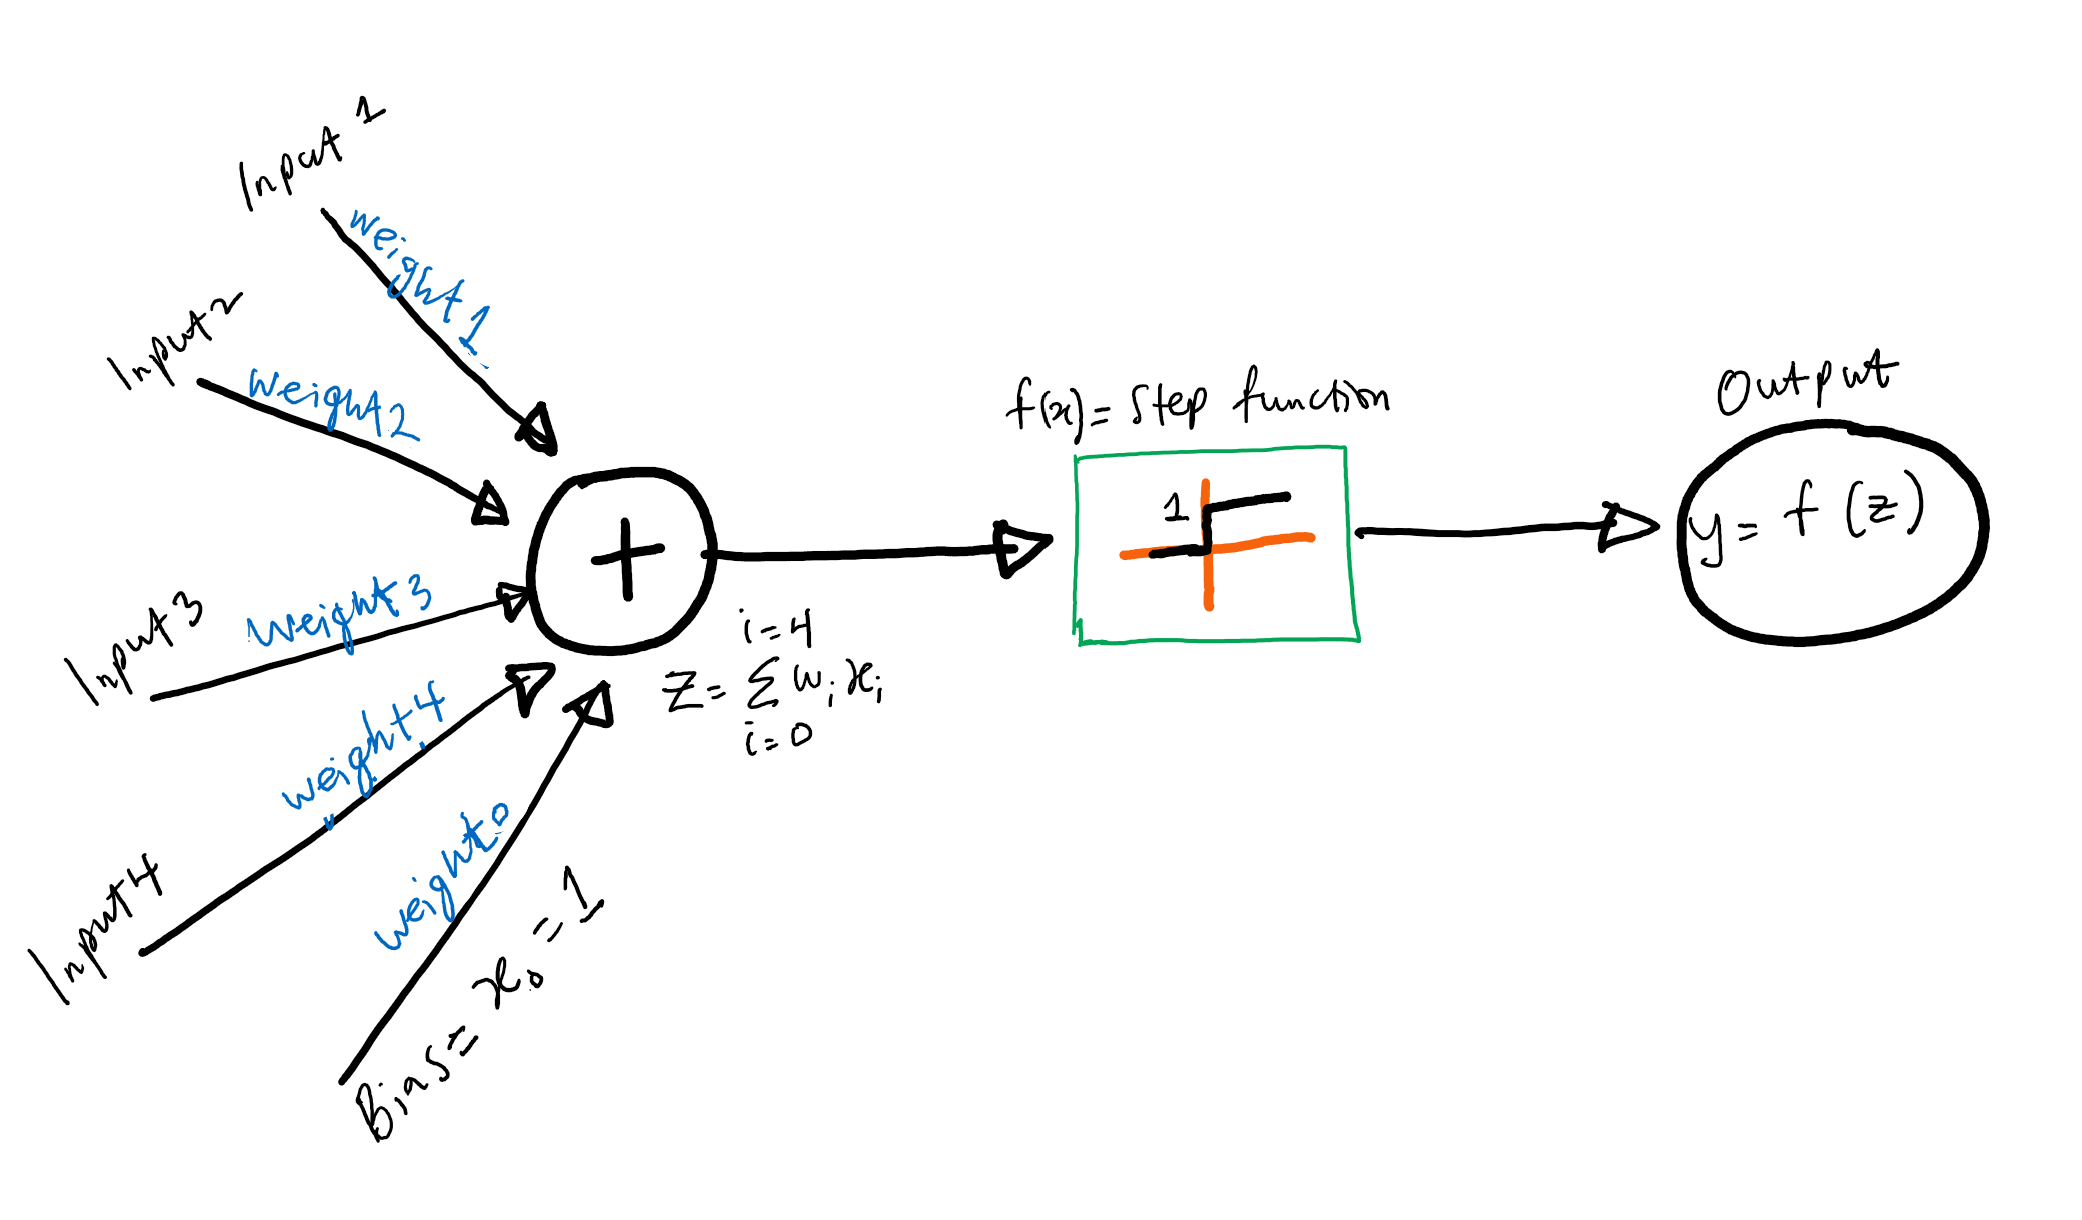 Input 1
weight 1
Input 2
weight 2
Input 3
weight 3
Input 4
weight 4
Bias = x₀ = 1
weight 0
+
i=4
z = Σ wᵢ xᵢ
i=0
f(x) = Step function
1
Output
y = f (z)